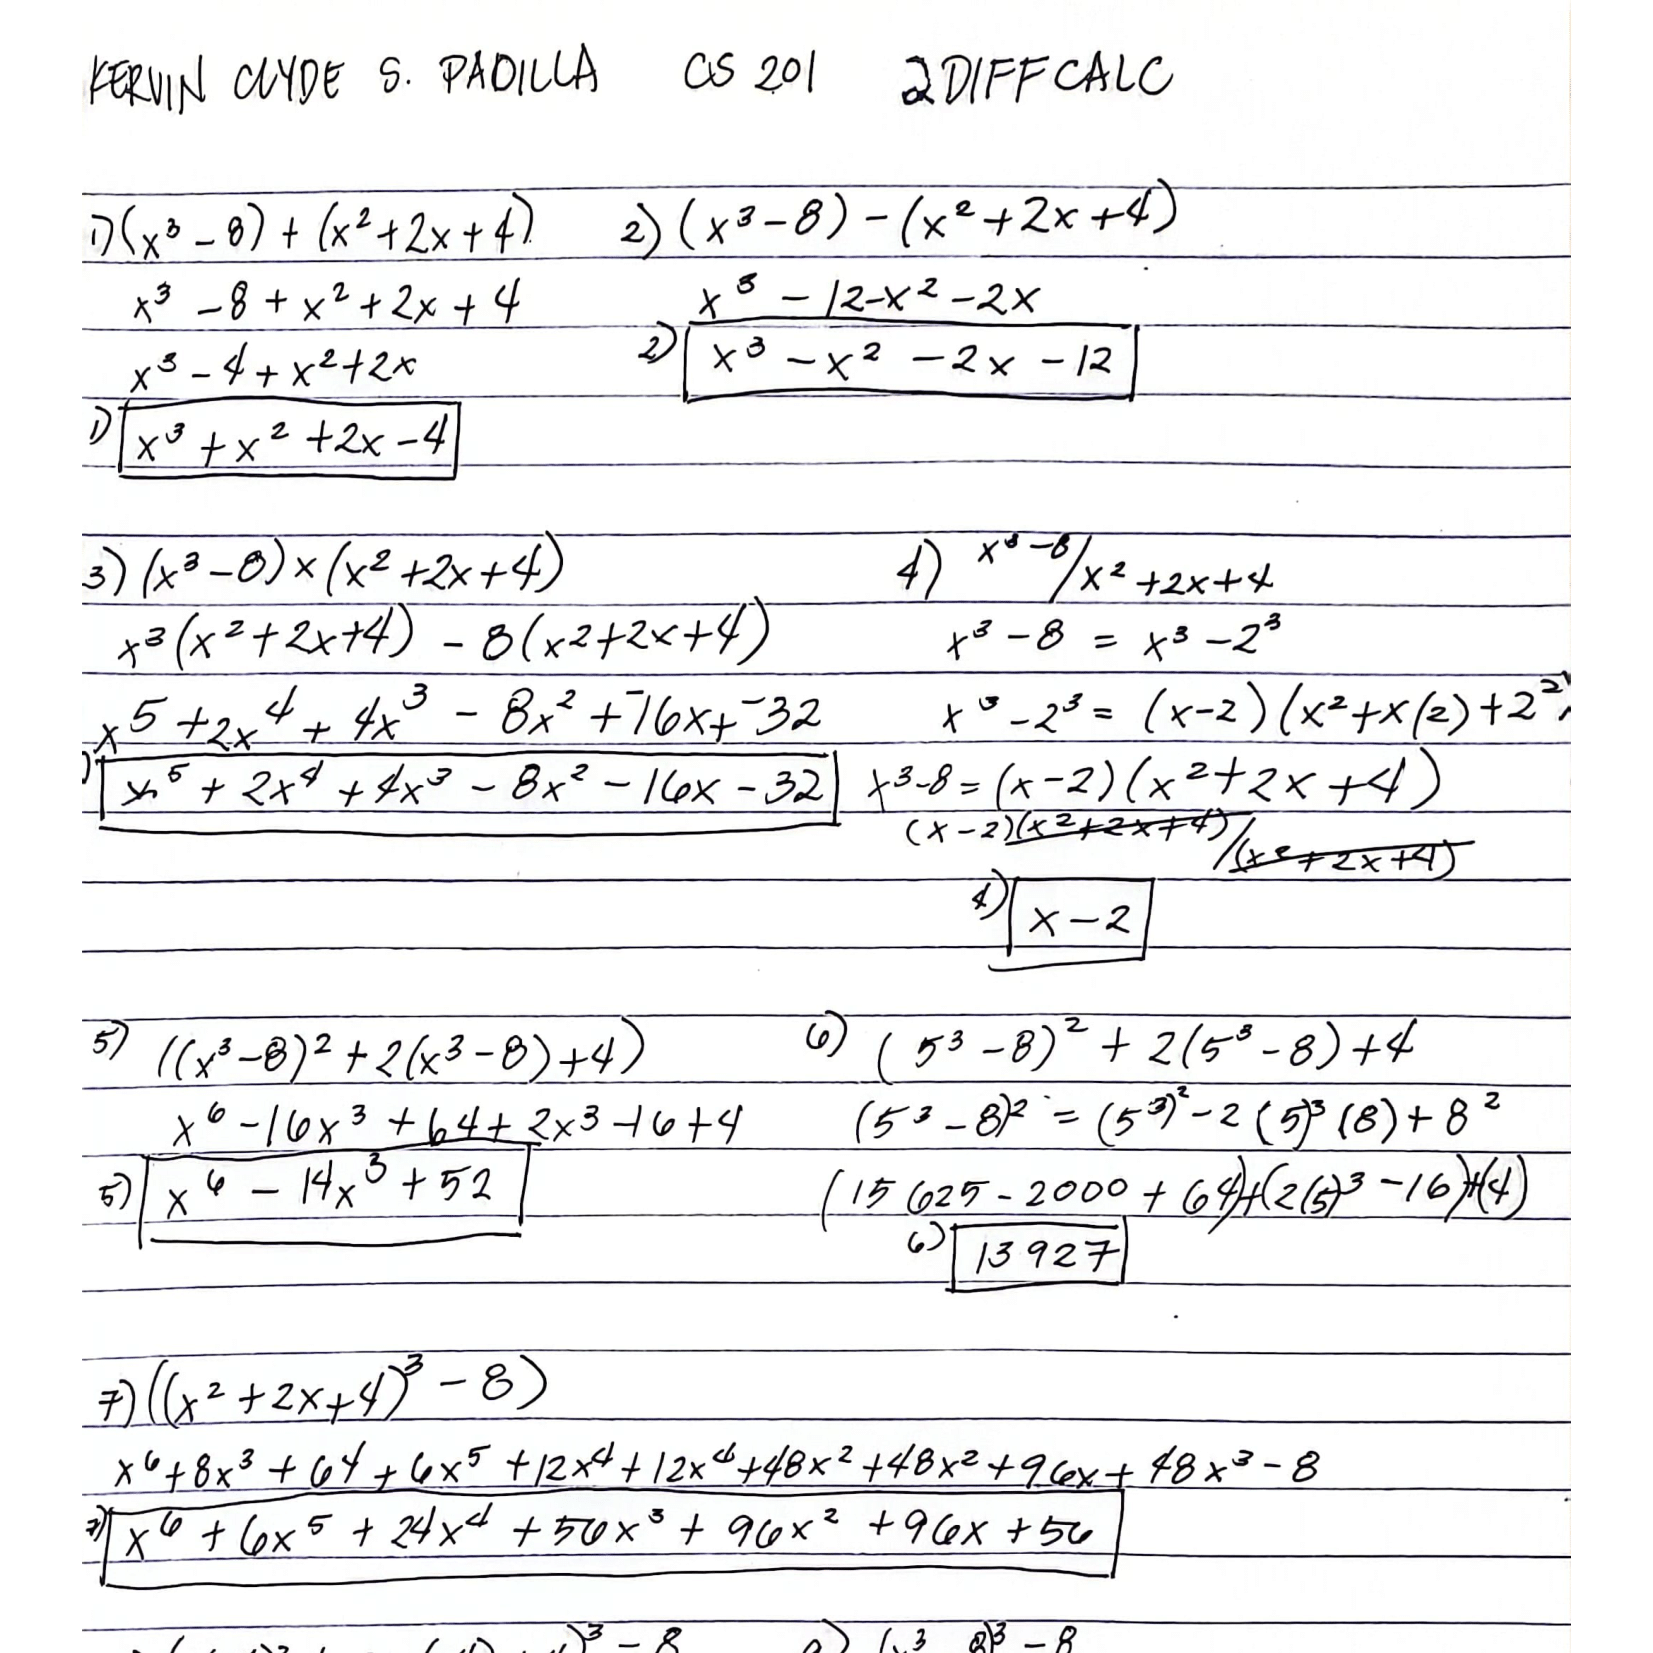 KERVIN CLYDE S. PADILLA CS 201 2DIFFCALC
1) (x³ - 8) + (x² + 2x + 4)
x³ - 8 + x² + 2x + 4
x³ - 4 + x² + 2x
1) x³ + x² + 2x - 4
2) (x³ - 8) - (x² + 2x + 4)
x³ - 12 - x² - 2x
2) x³ - x² - 2x - 12
3) (x³ - 8) × (x² + 2x + 4)
x³(x² + 2x + 4) - 8(x² + 2x + 4)
x⁵ + 2x⁴ + 4x³ - 8x² + ⁻16x + ⁻32
) x⁵ + 2x⁴ + 4x³ - 8x² - 16x - 32
4) x³ - 8 / x² + 2x + 4
x³ - 8 = x³ - 2³
x³ - 2³ = (x - 2)(x² + x(2) + 2²)
x³ - 8 = (x - 2)(x² + 2x + 4)
(x - 2)(x² + 2x + 4) / (x² + 2x + 4)
4) x - 2
5) ((x³ - 8)² + 2(x³ - 8) + 4)
x⁶ - 16x³ + 64 + 2x³ - 16 + 4
5) x⁶ - 14x³ + 52
6) (5³ - 8)² + 2(5³ - 8) + 4
(5³ - 8)² = (5³)² - 2(5)³(8) + 8²
(15625 - 2000 + 64) + (2(5)³ - 16) + (4)
6) 13927
7) ((x² + 2x + 4)³ - 8)
x⁶ + 8x³ + 64 + 6x⁵ + 12x⁴ + 12x⁴ + 48x² + 48x² + 96x + 48x³ - 8
7) x⁶ + 6x⁵ + 24x⁴ + 56x³ + 96x² + 96x + 56